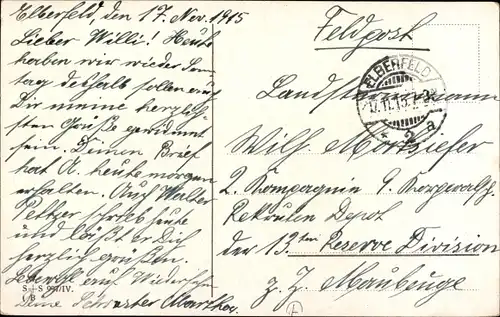 Elberfeld, den 17. Nov. 1915
Lieber Willi! Heute
haben wir wieder Sonn-
tag deshalb sollen auch
Dir meine herzlich-
sten Grüße gewidmet
sein. Deinen Brief
hat A. heute morgen
erhalten. Auch Walter
schrieb heute
und läßt er Dich
herzlich grüßen.
Lebewohl auf Wiedersehn
Deine Schwester Martha.
S+S 997/IV.
B
Feldpost
ELBERFELD
17.11.15.
* 2 a
Landsturmmann
Wilh.
2. Kompagnie
Rekruten Depot
der 13ten Reserve Division
z. Z. Maubeuge